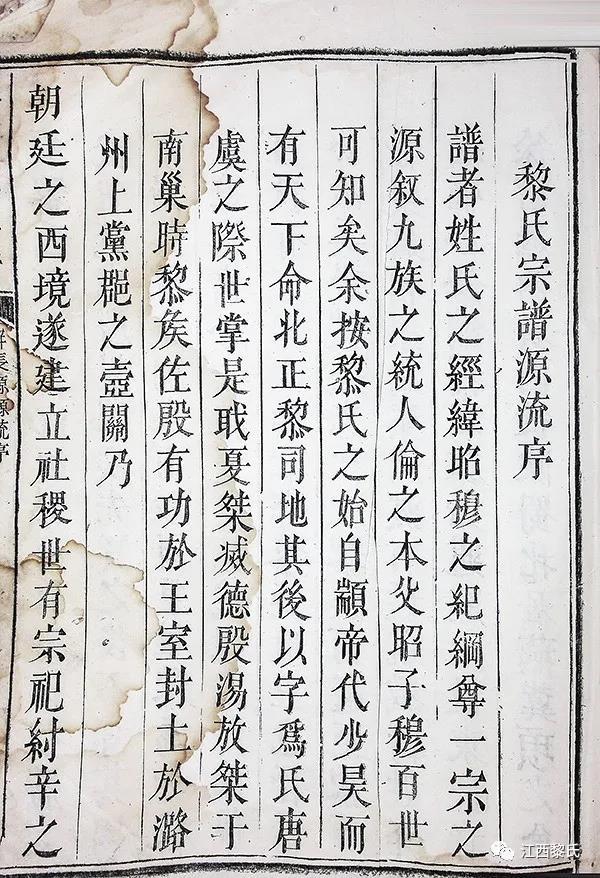 黎氏宗譜源流序
譜者姓氏之經緯昭穆之紀綱尊一宗之
源叙九族之統人倫之本父昭子穆百世
可知矣余按黎氏之始自顓帝代少昊而
有天下命北正黎司地其後以字為氏唐
虞之際世掌是耺夏桀滅德殷湯放桀于
南巢時黎矦佐殷有功於王室封土於潞
州上黨郡之壺關乃
朝廷之西境遂建立社稷世有宗祀紂辛之
江西黎氏